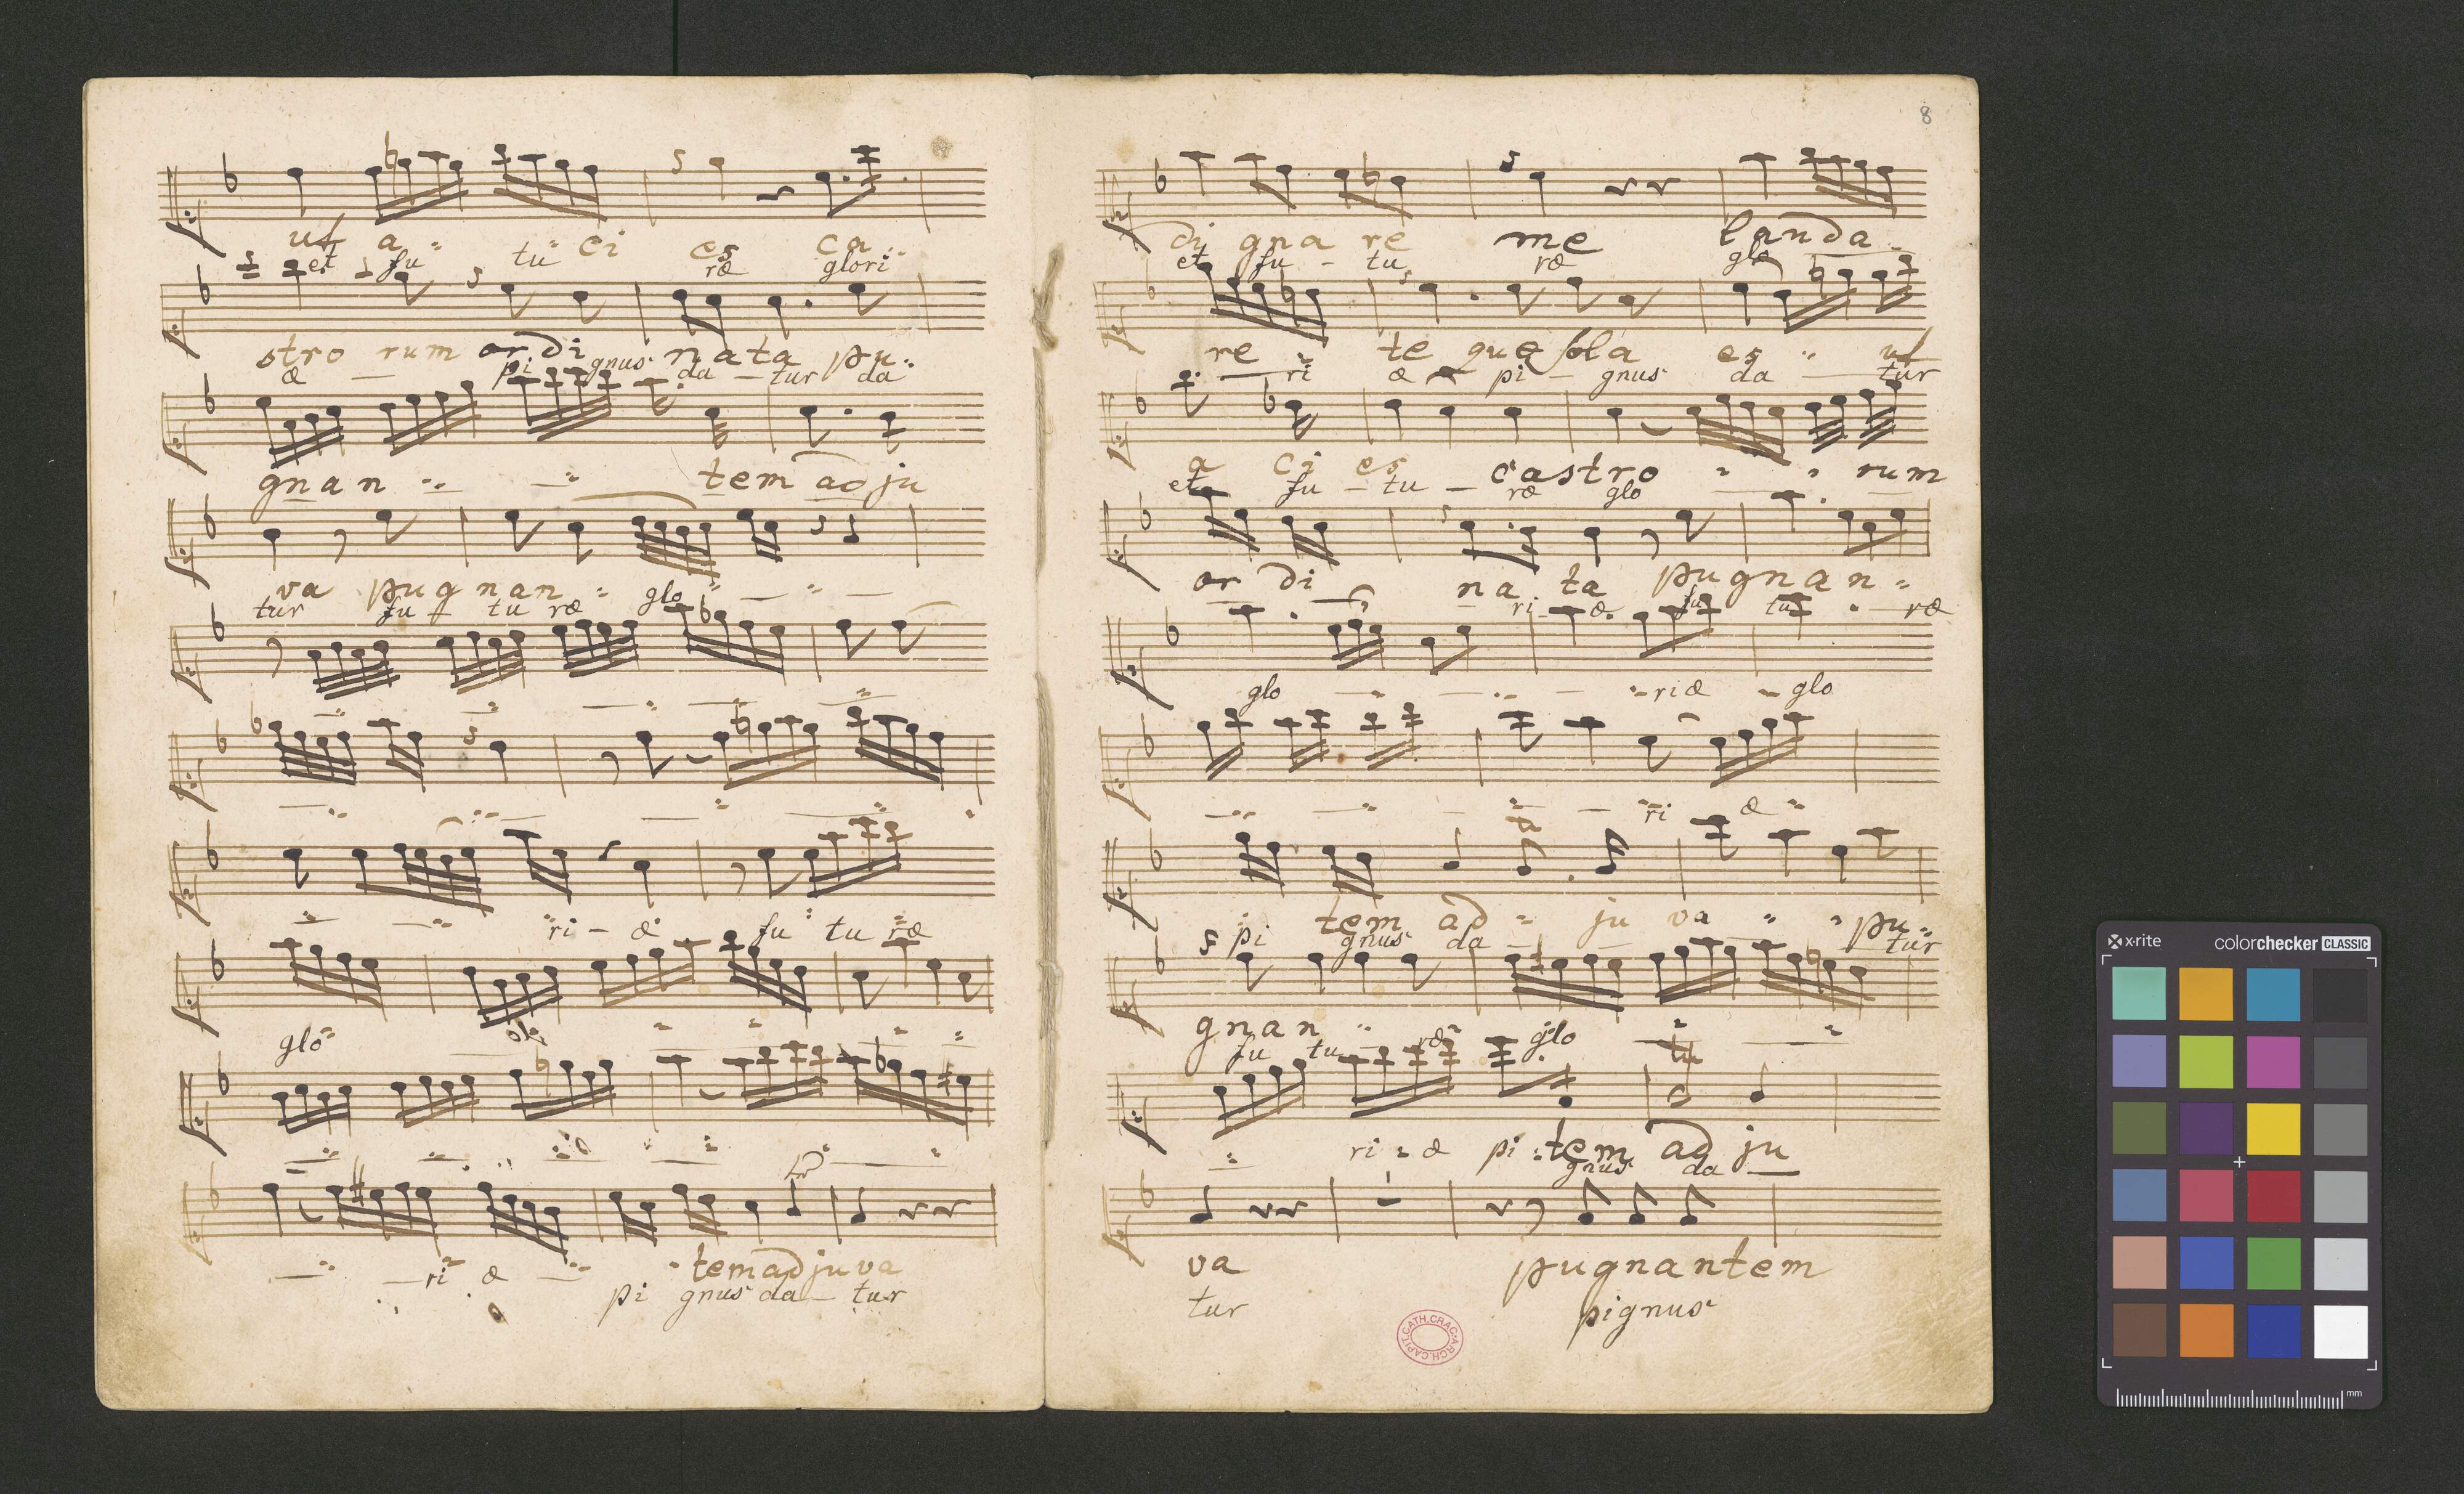 ut a ci es ca
et fu tu ræ glori
stro rum or di nata pu
æ pi gnus da tur da
gnan tem ad ju
va pu gnan
tur fu tu ræ glo
ri æ fu tu ræ
glo
ri æ tem ad ju va
pi gnus da tur
8
di gna re me landa
et fu tu ræ glo
re te que sola es ut
ri æ pi gnus da tur
a ci es castro rum
et fu tu ræ glo
or di na ta pu gnan
ri æ fu tu ræ
glo riæ glo
ri æ
tr
tem ad ju va pu
pi gnus da tur
gnan
fu tu ræ glo
tr
ri æ pi tem ad ju
gnus da
va pugnantem
tur pignus
ARCH.CAPIT.CATH.CRAC.
x-rite colorchecker CLASSIC
mm